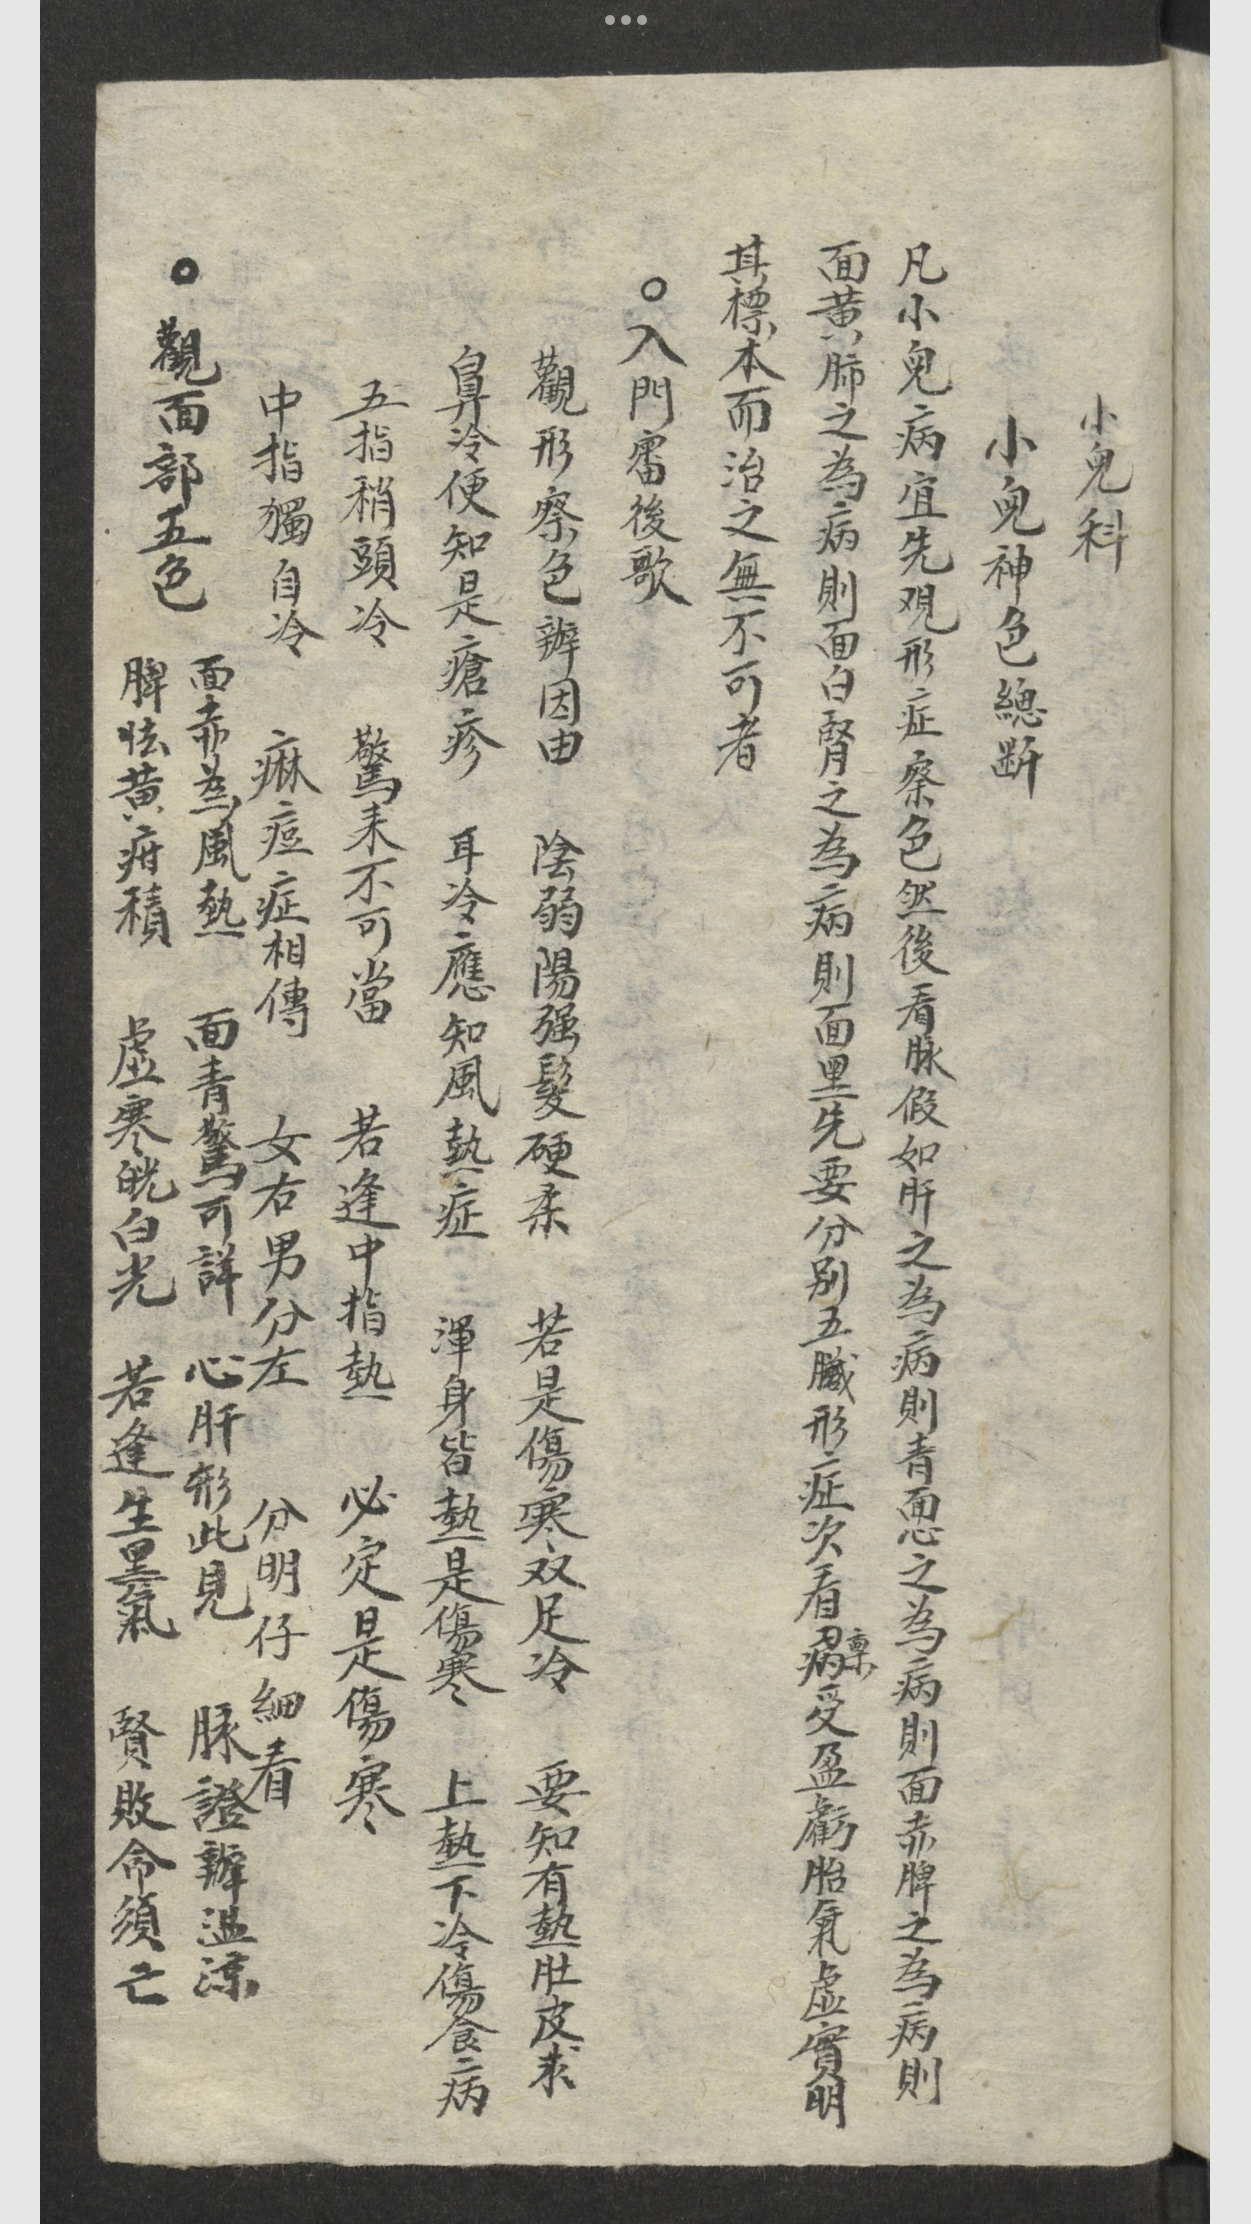 小兒科
小兒神色總斷
凡小兒病宜先观形症察色然後看脉假如肝之為病則青面心之為病則面赤脾之為病則
面黄肺之為病則面白腎之為病則面黑先要分别五臟形症次看病禀受盈虧胎氣虛實明
其標本而治之無不可者
○入門審後歌
觀形察色辦因由 陰弱陽强髮硬柔 若是傷寒双足冷 要知有熱肚皮求
鼻冷便知是瘡疹 耳冷應知風熱症 渾身皆熱是傷寒 上熱下冷傷食病
五指稍頭冷 驚来不可當 若逢中指熱 必定是傷寒
中指獨自冷 痳痘症相傳 女右男分左 分明仔細看
○觀面部五色
面赤為風熱 面青驚可詳 心肝形此見 脉證辦温凉
脾怯黄疳積 虛寒㿠白光 若逢生黑氣 賢敗命須亡